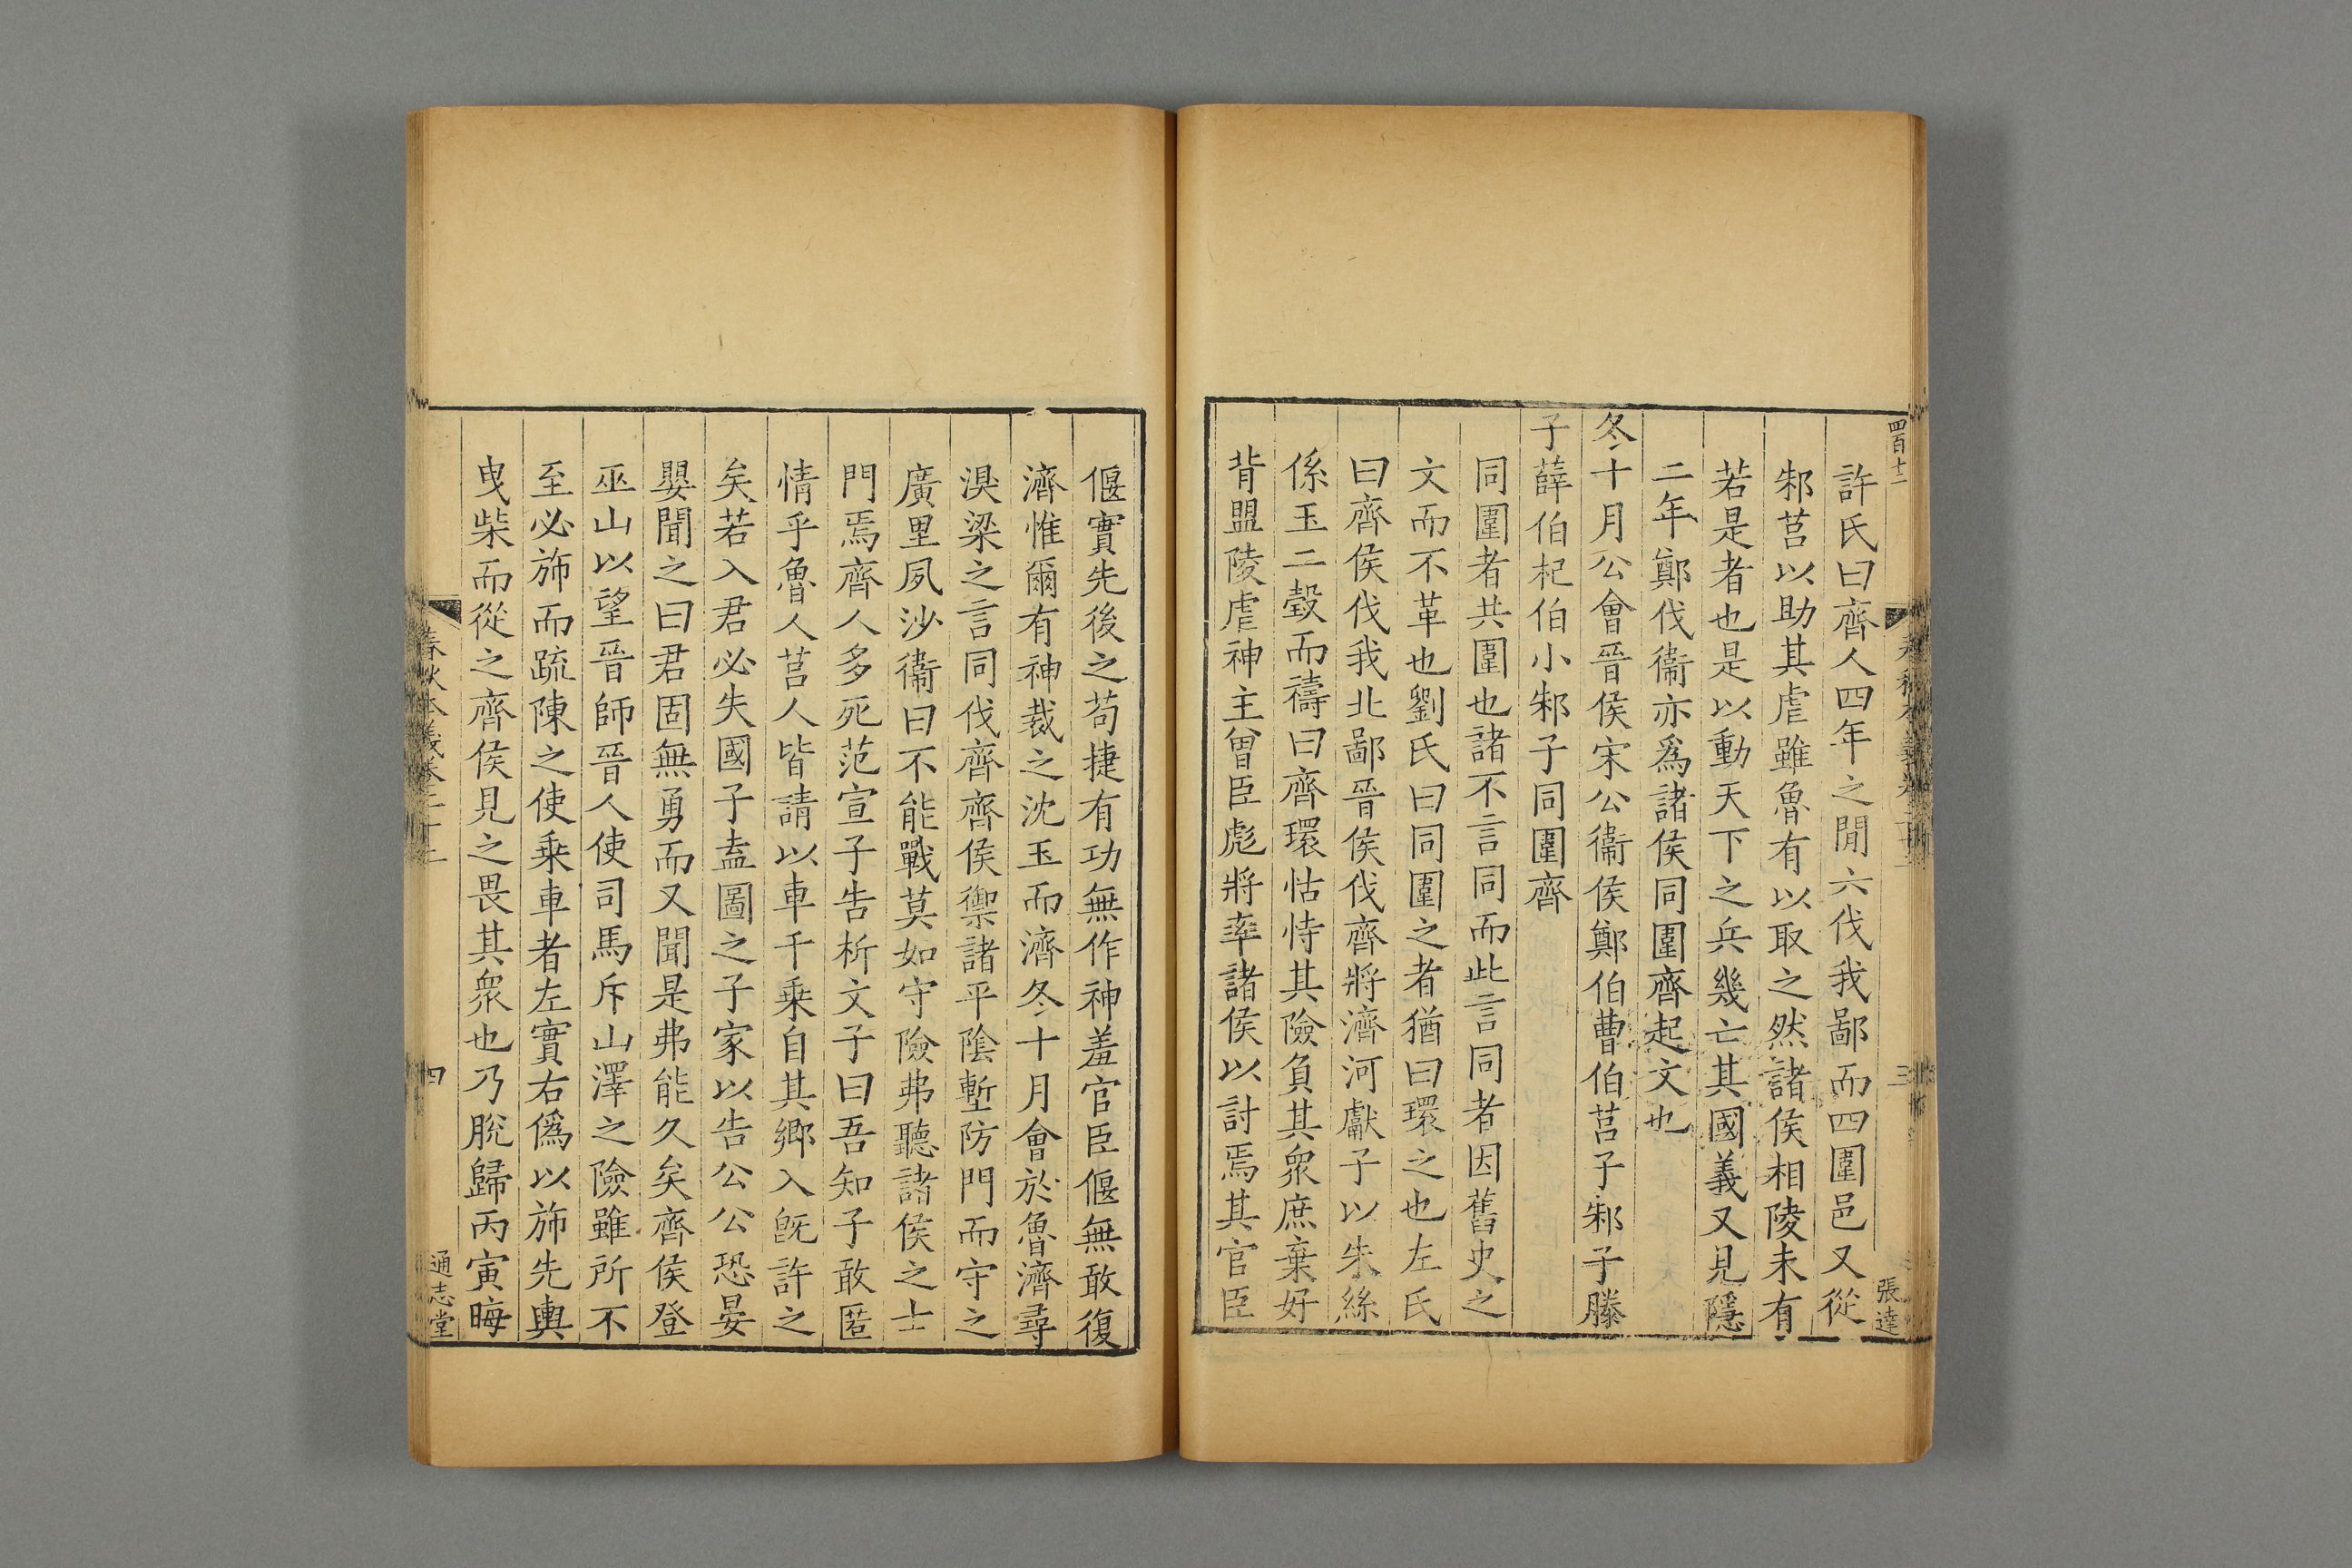 四百十二
三
張達
許氏曰齊人四年之閒六伐我鄙而四圍邑又從
邾莒以助其虐雖魯有以取之然諸侯相陵未有
若是者也是以動天下之兵幾亡其國義又見隱
二年鄭伐衞亦爲諸侯同圍齊起文也
冬十月公會晉侯宋公衞侯鄭伯曹伯莒子邾子滕
子薛伯杞伯小邾子同圍齊
同圍者共圍也諸不言同而此言同者因舊史之
文而不革也劉氏曰同圍之者猶曰環之也左氏
曰齊侯伐我北鄙晉侯伐齊將濟河獻子以朱絲
係玉二瑴而禱曰齊環怙恃其險負其衆庶棄好
背盟陵虐神主曾臣彪將率諸侯以討焉其官臣
偃實先後之苟捷有功無作神羞官臣偃無敢復
濟惟爾有神裁之沈玉而濟冬十月會於魯濟尋
湨梁之言同伐齊齊侯禦諸平隂塹防門而守之
廣里夙沙衞曰不能戰莫如守險弗聽諸侯之士
門焉齊人多死范宣子告析文子曰吾知子敢匿
情乎魯人莒人皆請以車千乗自其郷入旣許之
矣若入君必失國子盍圖之子家以告公公恐晏
嬰聞之曰君固無勇而又聞是弗能久矣齊侯登
巫山以望晉師晉人使司馬斥山澤之險雖所不
至必斾而疏陳之使乗車者左實右僞以斾先輿
曳柴而從之齊侯見之畏其衆也乃脫歸丙寅晦
春秋本義卷二十二
四
通志堂